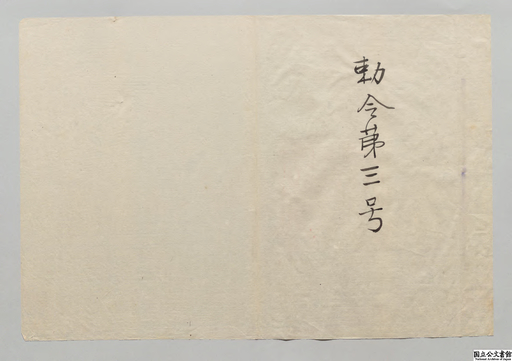 勅令第三号
国立公文書館
National Archives of Japan